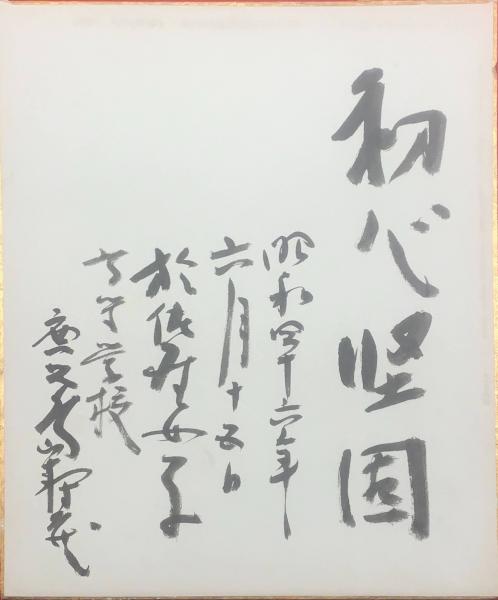 初心堅固
昭和四十六年
六月十五日
於佐野女子
高等学校